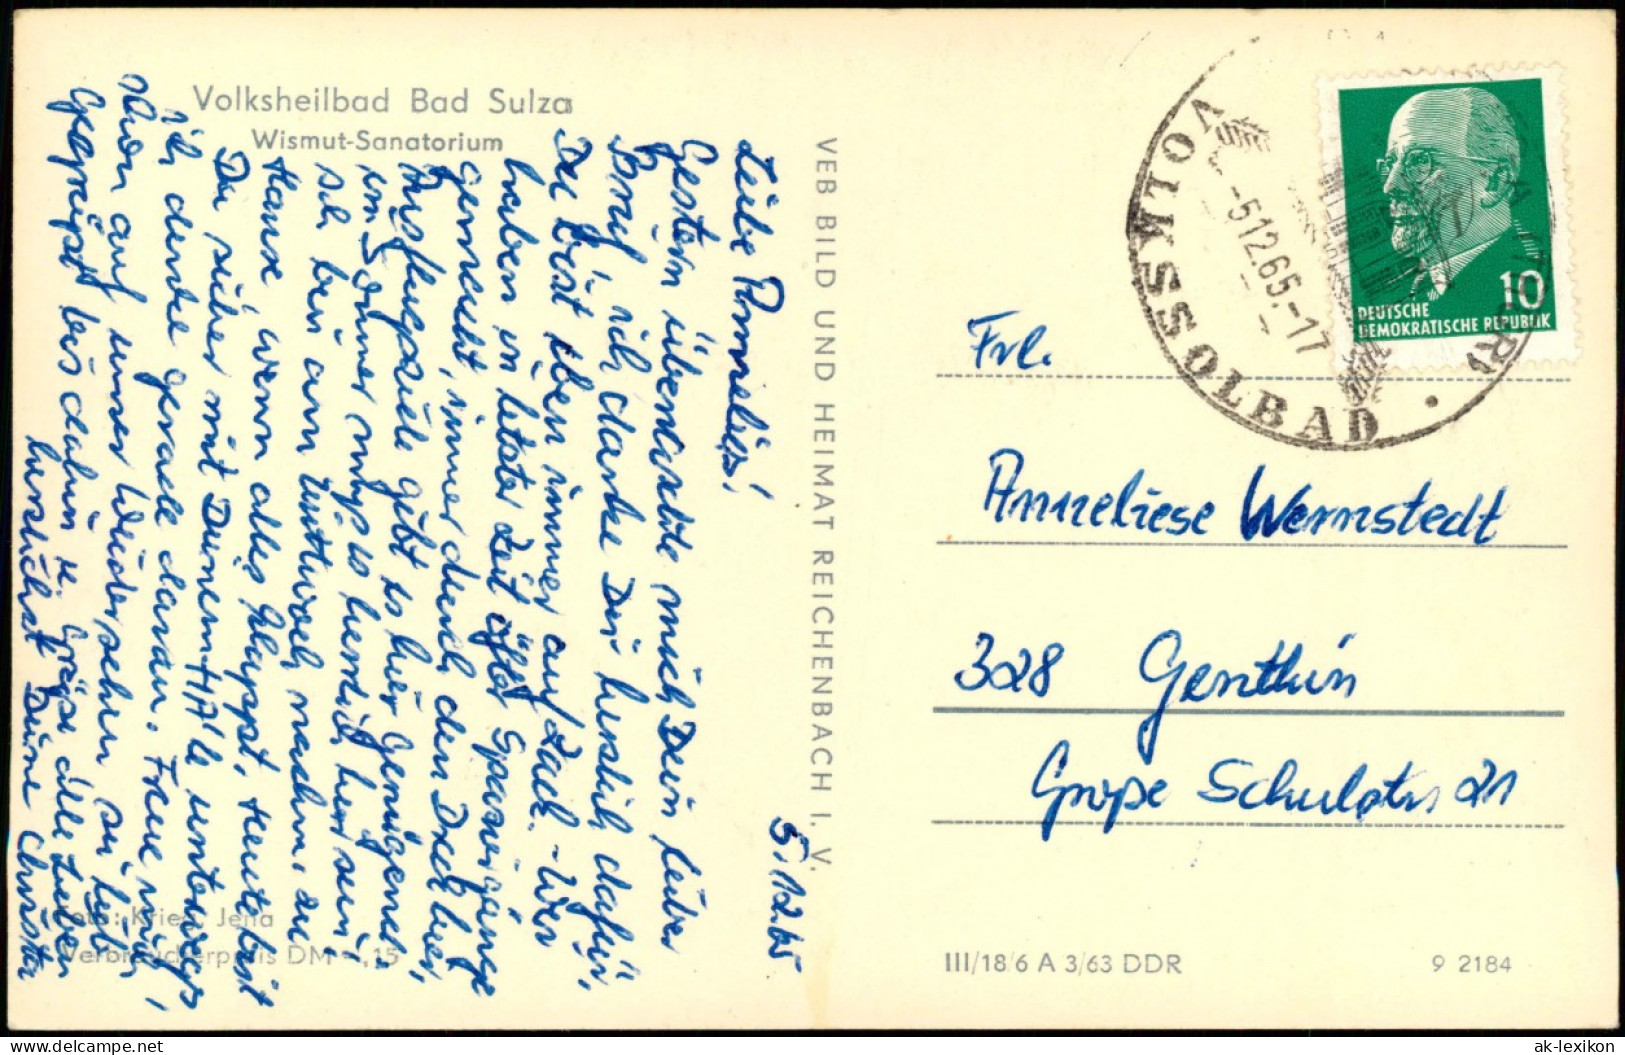 Volksheilbad Bad Sulza
Wismut-Sanatorium
5.12.65
Liebe Annelies!
Gestern überraschte mich Dein lieber
Brief, ich danke Dir herzlich dafür,
Du bist eben immer auf Zack. - Wir
haben in letzter Zeit öfter Spaziergänge
gemacht, immer durch den Dreck hier,
Ausflugsziele gibt es hier genügend.
im Sommer muß es herrlich hier sein!
Ich bin am Mittwoch nachm. zu
Hause, wenn alles klappt, heute bist
Du sicher mit Deinem unterwegs
ich denke gerade daran. Freue mich
schon auf unser Wiedersehen, sei lieb
gegrüßt bis dahin u. grüße alle Lieben
herzlichst Deine Christa
Foto: Krieg, Jena
Verbraucherpreis DM -,15
VEB BILD UND HEIMAT REICHENBACH I. V.
SOLBAD
-5.12.65.-17
10
DEUTSCHE
DEMOKRATISCHE REPUBLIK
Frl.
Anneliese Wernstedt
328 Genthin
Große Schulstr 21
III/18/6 A 3/63 DDR
9 2184
ak-lexikon